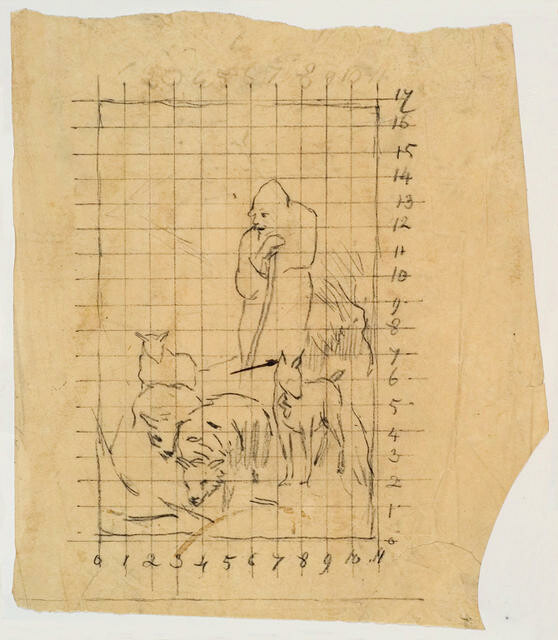 17
16
15
14
13
12
11
10
9
8
7
6
5
4
3
2
1
0
0 1 2 3 4 5 6 7 8 9 10 11